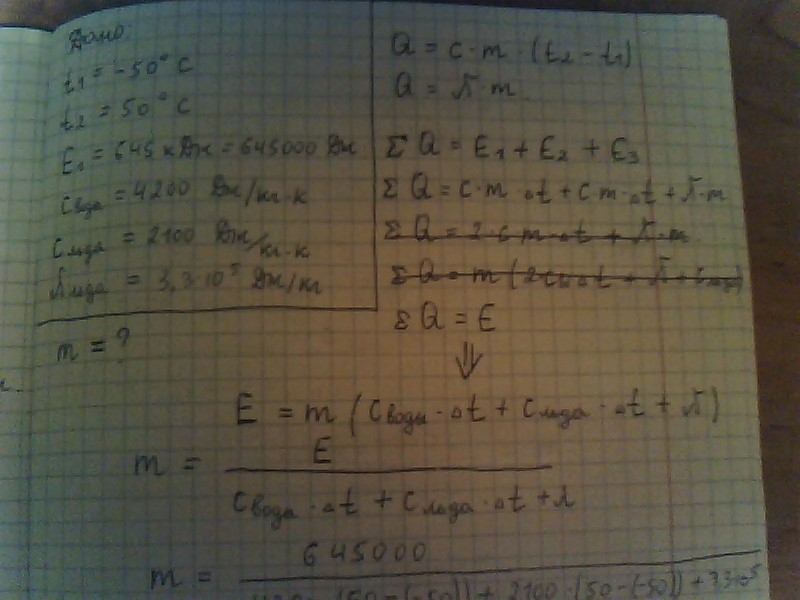 Дано
t₁ = -50° С
t₂ = 50° С
E₁ = 645 кДж = 645000 Дж
Cвода = 4200 Дж/кг·К
Cльда = 2100 Дж/кг·К
λльда = 3,3·10⁵ Дж/кг
m = ?
Q = c·m·(t₂-t₁)
Q = λ·m
ΣQ = E₁ + E₂ + E₃
ΣQ = c·m·Δt + c·m·Δt + λ·m
ΣQ = 2·c·m·Δt + λ·m
ΣQ = E
⇓
E = m (Cводы·Δt + Cльда·Δt + λ)
m = E
Cвода·Δt + Cльда·Δt + λ
m = 645000
(50-(-50)) + 2100·(50-(-50)) + 3,3·10⁵